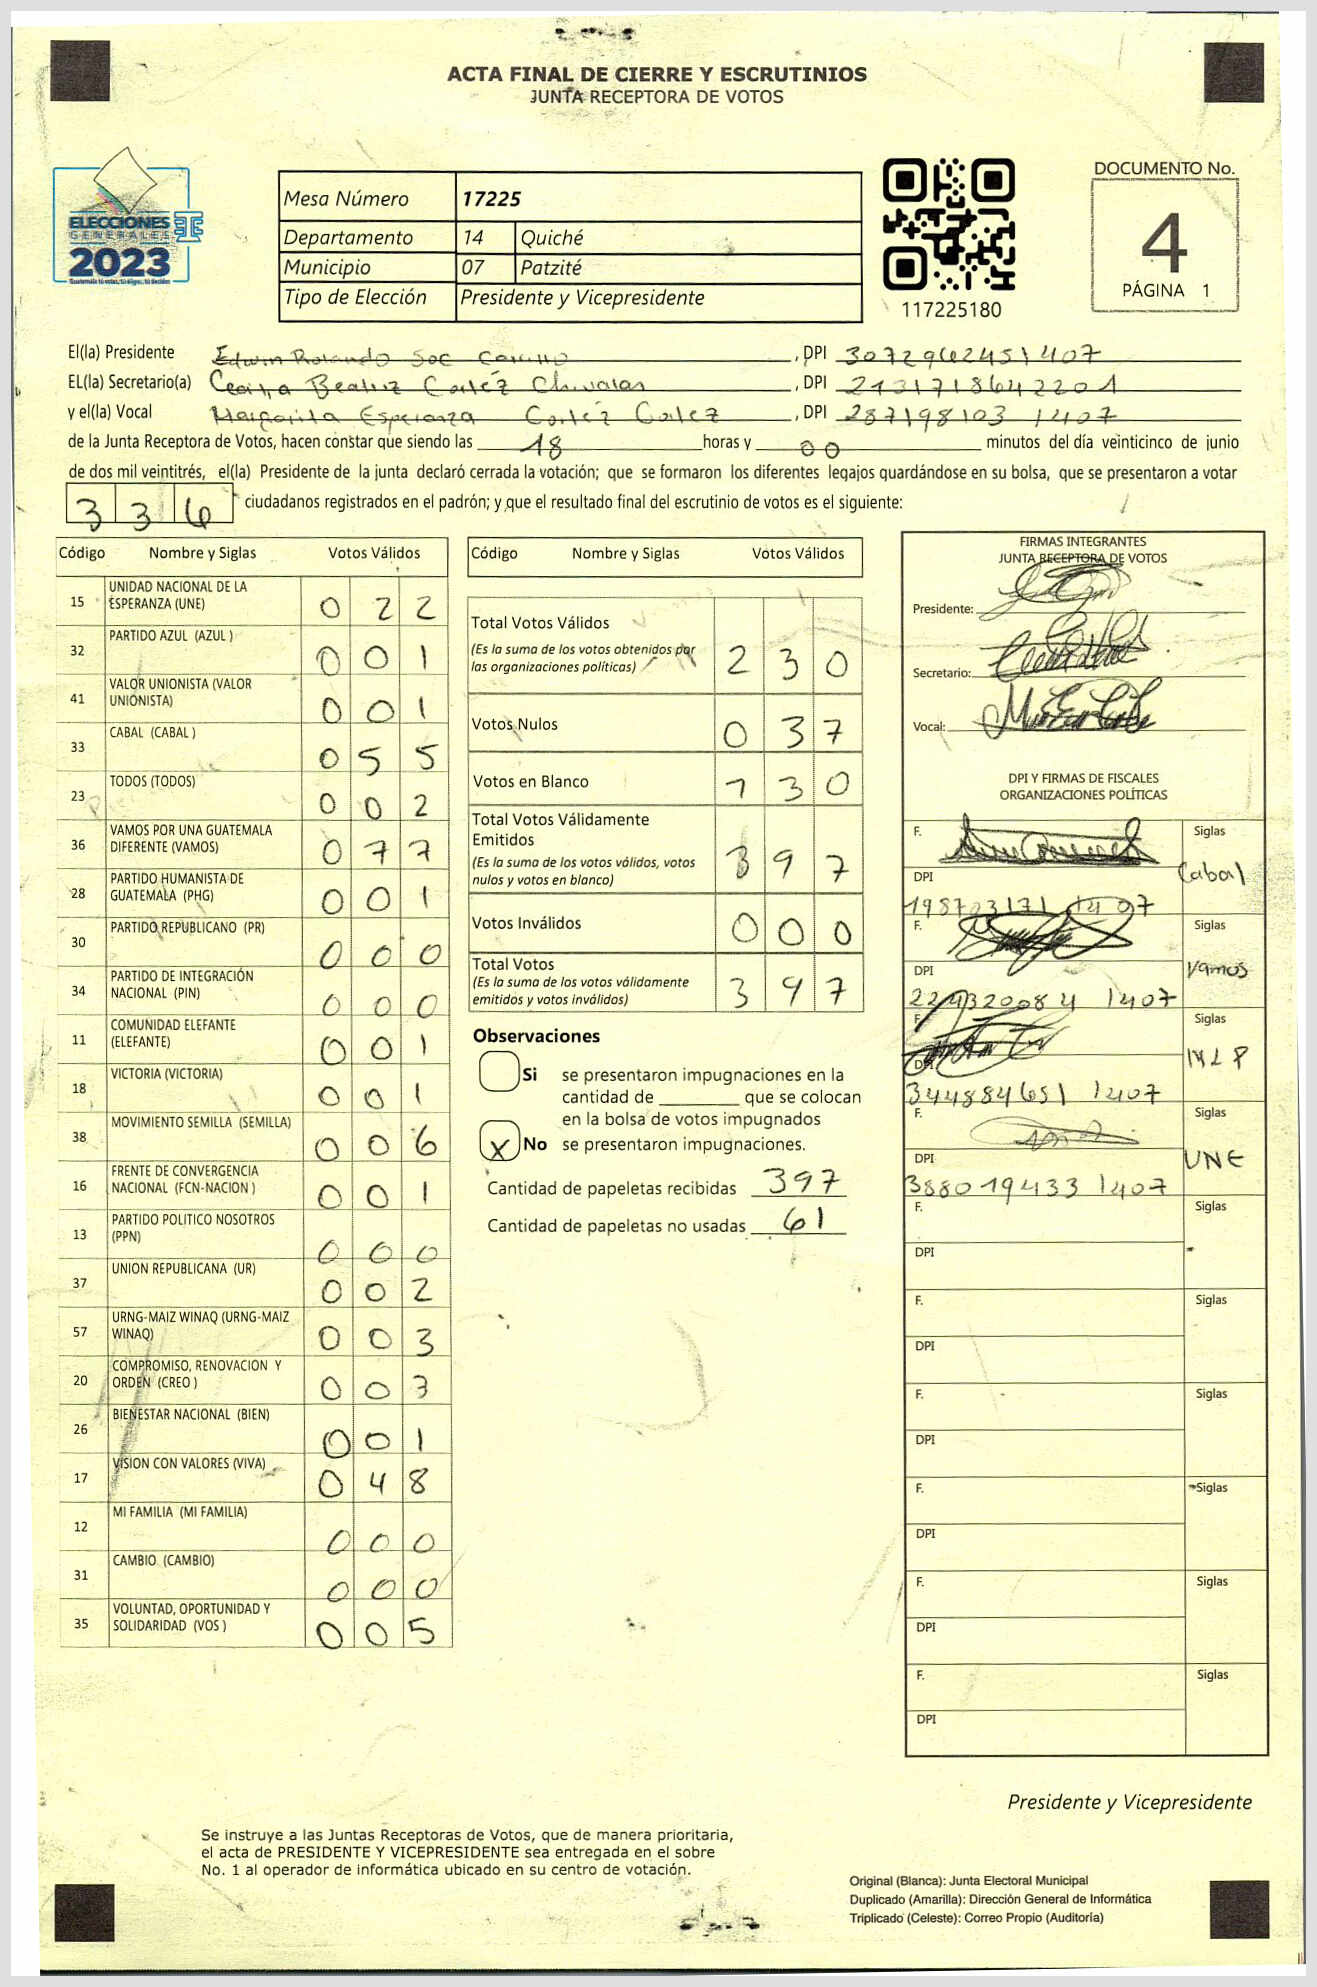 ACTA FINAL DE CIERRE Y ESCRUTINIOS
JUNTA RECEPTORA DE VOTOS
ELECCIONES
GENERALES
2023
Mesa Número 17225
Departamento 14 Quiché
Municipio 07 Patzité
Tipo de Elección Presidente y Vicepresidente
117225180
DOCUMENTO No.
4
PÁGINA 1
El(la) Presidente Edwin Rolando Soc Carrillo, DPI 3072962451407
EL(la) Secretario(a) Beatriz Cortéz, DPI 2131718642201
y el(la) Vocal Margarita Esperanza Cortéz Cortez, DPI 287198103 1407
de la Junta Receptora de Votos, hacen constar que siendo las 18 horas y 00 minutos del día veinticinco de junio
de dos mil veintitrés, el(la) Presidente de la junta declaró cerrada la votación; que se formaron los diferentes legajos quardándose en su bolsa, que se presentaron a votar
336 ciudadanos registrados en el padrón; y que el resultado final del escrutinio de votos es el siguiente:
Código Nombre y Siglas Votos Válidos
15 UNIDAD NACIONAL DE LA
ESPERANZA (UNE) 0 2 2
32 PARTIDO AZUL (AZUL ) 0 0 1
41 VALOR UNIONISTA (VALOR
UNIONISTA) 0 0 1
33 CABAL (CABAL ) 0 5 5
23 TODOS (TODOS) 0 0 2
36 VAMOS POR UNA GUATEMALA
DIFERENTE (VAMOS) 0 7 7
28 PARTIDO HUMANISTA DE
GUATEMALA (PHG) 0 0 1
30 PARTIDO REPUBLICANO (PR) 0 0 0
34 PARTIDO DE INTEGRACIÓN
NACIONAL (PIN) 0 0 0
11 COMUNIDAD ELEFANTE
(ELEFANTE) 0 0 1
18 VICTORIA (VICTORIA) 0 0 1
38 MOVIMIENTO SEMILLA (SEMILLA) 0 0 6
16 FRENTE DE CONVERGENCIA
NACIONAL (FCN-NACION ) 0 0 1
13 PARTIDO POLITICO NOSOTROS
(PPN) 0 0 0
37 UNION REPUBLICANA (UR) 0 0 2
57 URNG-MAIZ WINAQ (URNG-MAIZ
WINAQ) 0 0 3
20 COMPROMISO, RENOVACION Y
ORDEN (CREO ) 0 0 3
26 BIENESTAR NACIONAL (BIEN) 0 0 1
17 VISION CON VALORES (VIVA) 0 4 8
12 MI FAMILIA (MI FAMILIA) 0 0 0
31 CAMBIO (CAMBIO) 0 0 0
35 VOLUNTAD, OPORTUNIDAD Y
SOLIDARIDAD (VOS ) 0 0 5
Código Nombre y Siglas Votos Válidos
Total Votos Válidos
(Es la suma de los votos obtenidos por
las organizaciones políticas) 2 3 0
Votos Nulos 0 3 7
Votos en Blanco 1 3 0
Total Votos Válidamente
Emitidos
(Es la suma de los votos válidos, votos
nulos y votos en blanco) 3 9 7
Votos Inválidos 0 0 0
Total Votos
(Es la suma de los votos válidamente
emitidos y votos inválidos) 3 9 7
Observaciones
Si se presentaron impugnaciones en la
cantidad de ________ que se colocan
en la bolsa de votos impugnados
X No se presentaron impugnaciones.
Cantidad de papeletas recibidas 397
Cantidad de papeletas no usadas 61
FIRMAS INTEGRANTES
JUNTA RECEPTORA DE VOTOS
Presidente:
Secretario:
Vocal:
DPI Y FIRMAS DE FISCALES
ORGANIZACIONES POLÍTICAS
F. Siglas
Cabal
DPI
198703171 1407
F. Siglas
DPI Vamos
1407
F. Siglas
DPI
344884651 1407
F. Siglas
DPI UNE
388019433 1407
F. Siglas
DPI
F. Siglas
DPI
F. Siglas
DPI
F. Siglas
DPI
F. Siglas
DPI
F. Siglas
DPI
Presidente y Vicepresidente
Se instruye a las Juntas Receptoras de Votos, que de manera prioritaria,
el acta de PRESIDENTE Y VICEPRESIDENTE sea entregada en el sobre
No. 1 al operador de informática ubicado en su centro de votación.
Original (Blanca): Junta Electoral Municipal
Duplicado (Amarilla): Dirección General de Informática
Triplicado (Celeste): Correo Propio (Auditoría)